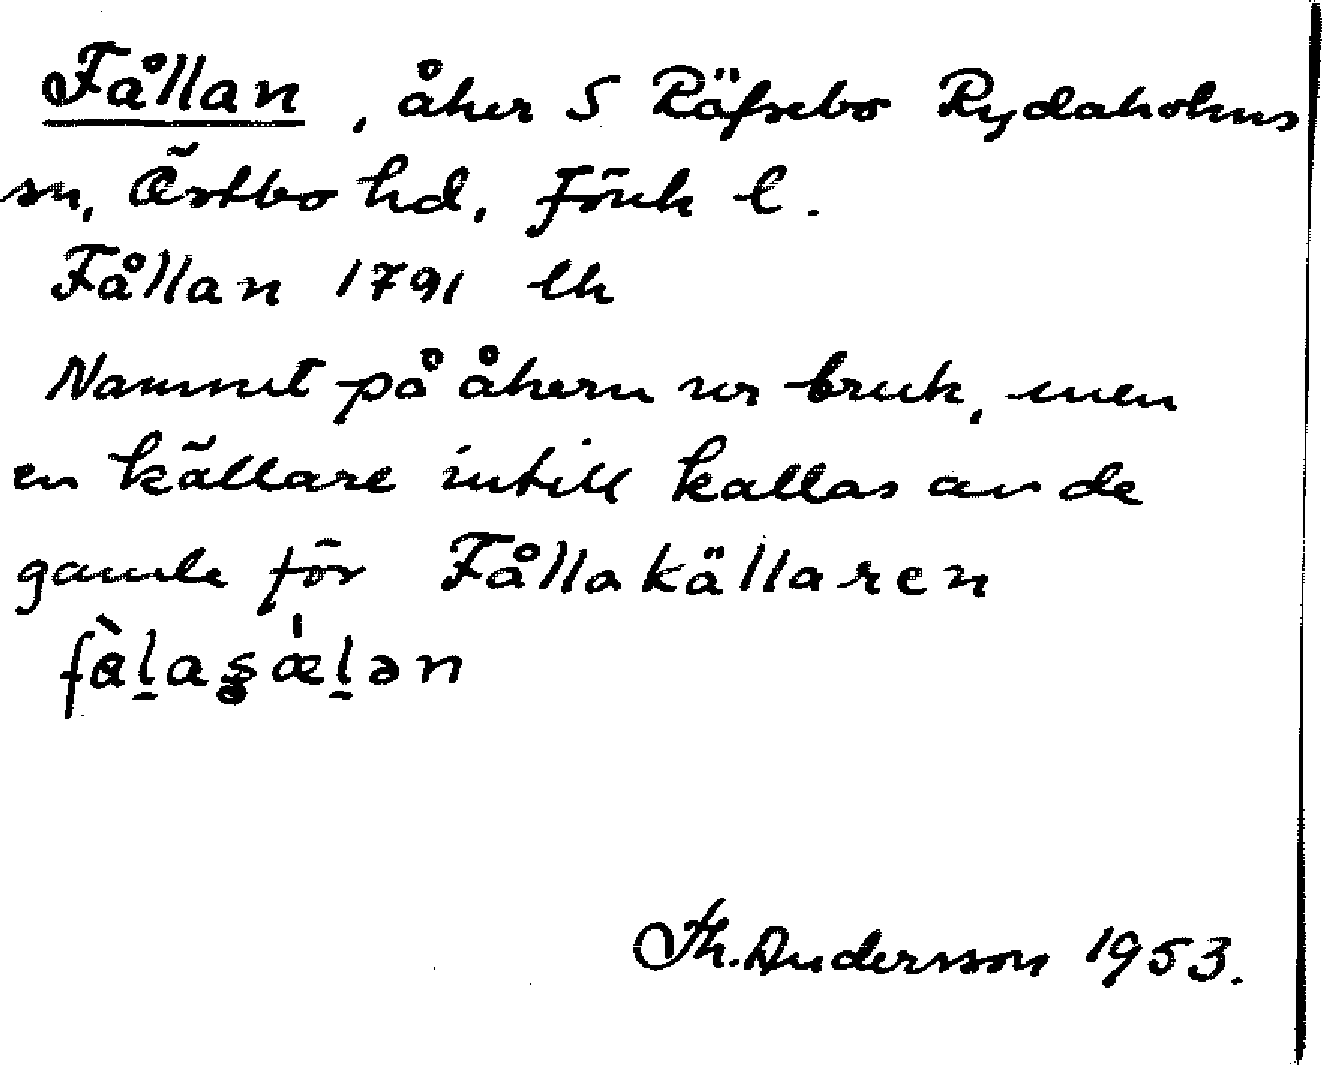 Fållan, åker S Räfsebo Rydaholms
sn, Östbo hd, Jönk l.
Fållan 1791 lh
Namnet på åkern ur bruk, men
en källare intill kallas av de
gamle för Fållakällaren
Th. Andersson 1953.